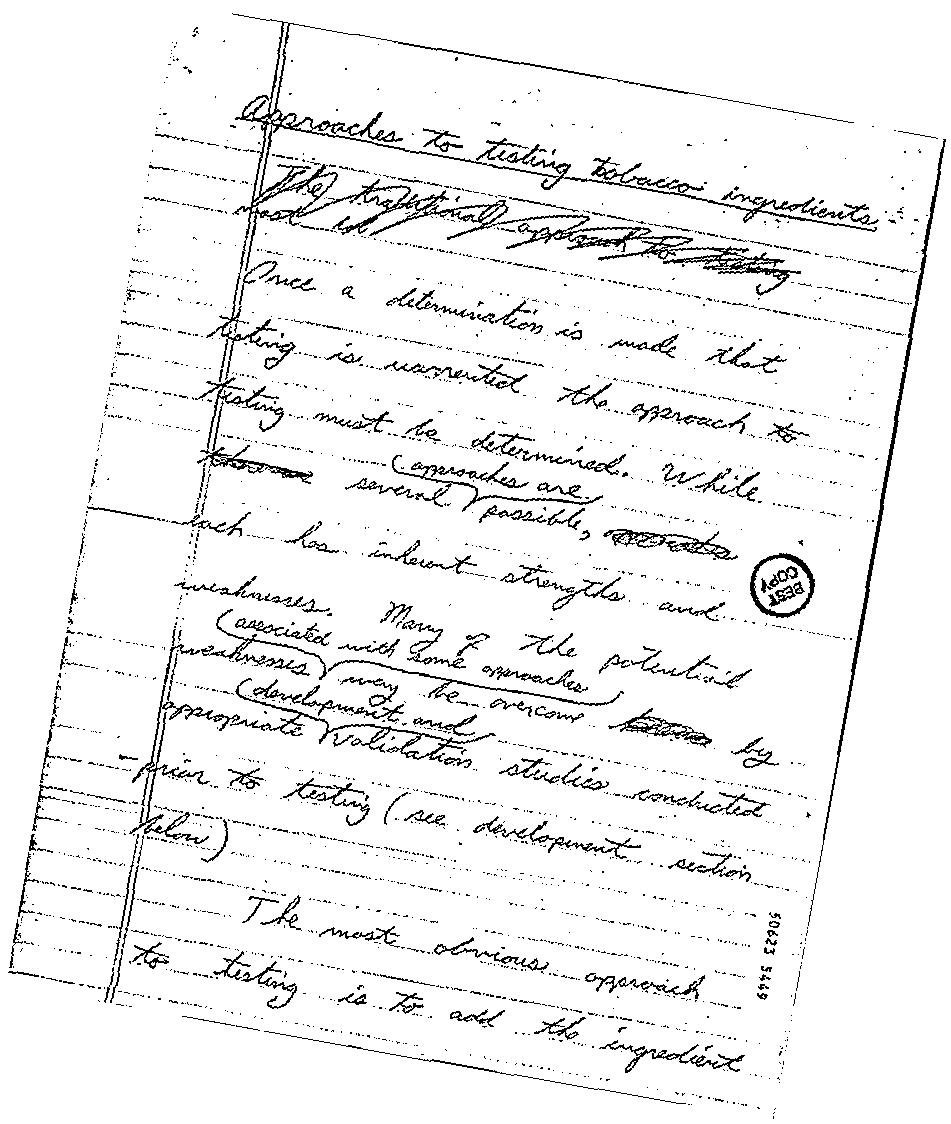 Approaches to testing tobacco ingredients
The traditional approach to testing
most
Once a determination is made that
testing is warrented the approach to
testing must be determined. While
approaches are
several possible,
each has inherent strengths and
weaknesses. Many of the potential
associated with some approaches
weaknesses may be overcome by
development and
appropriate validation studies conducted
prior to testing (see development section
below)
The most obvious approach
to testing is to add the ingredient
BEST
COPY
50623 5449